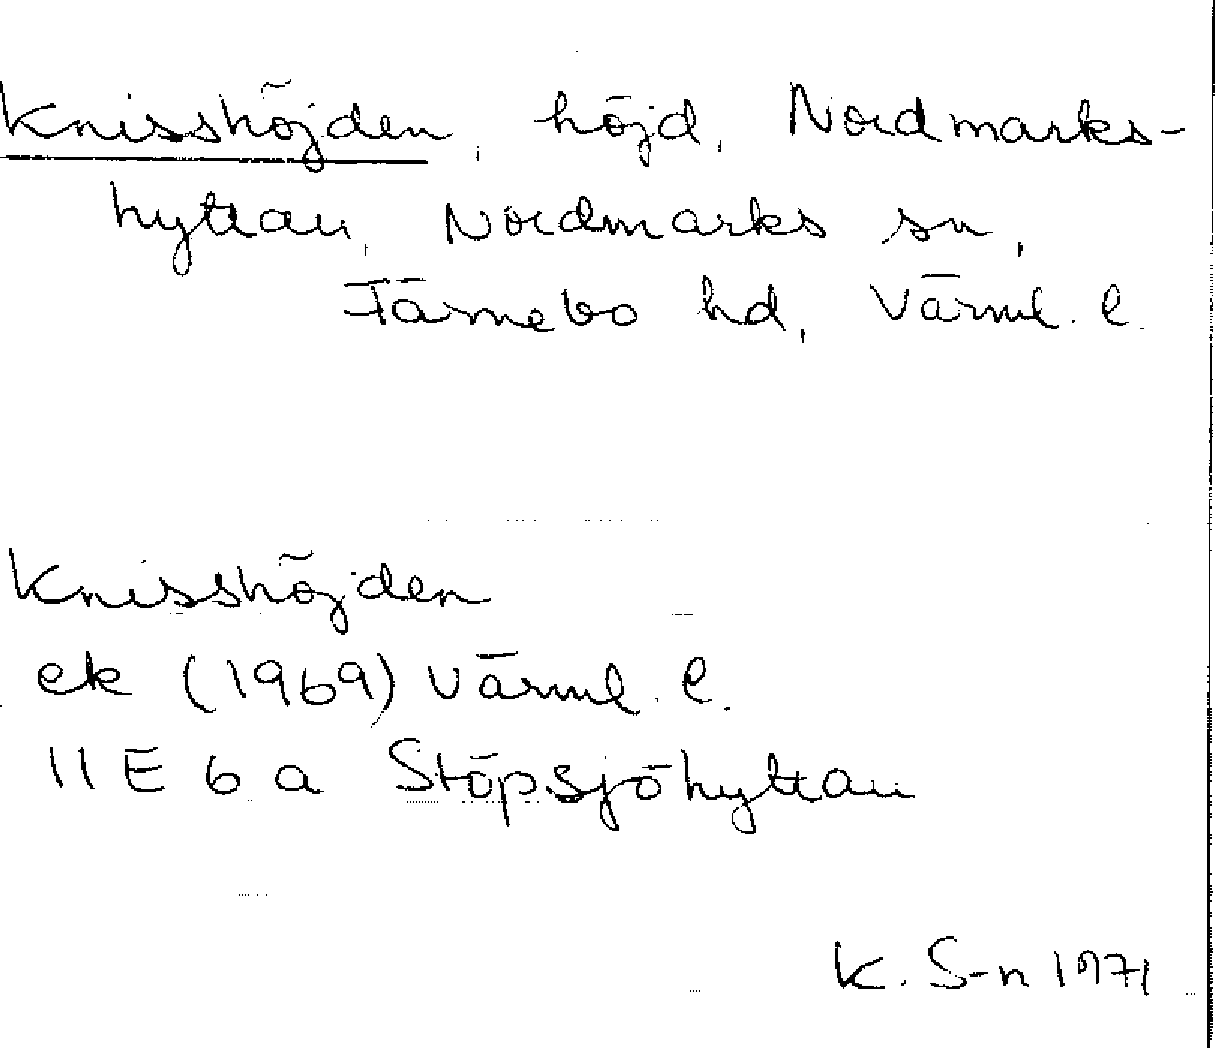 Knisshöjden, höjd, Nordmarks-
hyttan, Nordmarks sn,
Färnebo hd, Värml. l.
Knisshöjden
ek (1969) Värml. l.
11 E 6 a Stöpsjöhyttan
K. S-n 1971